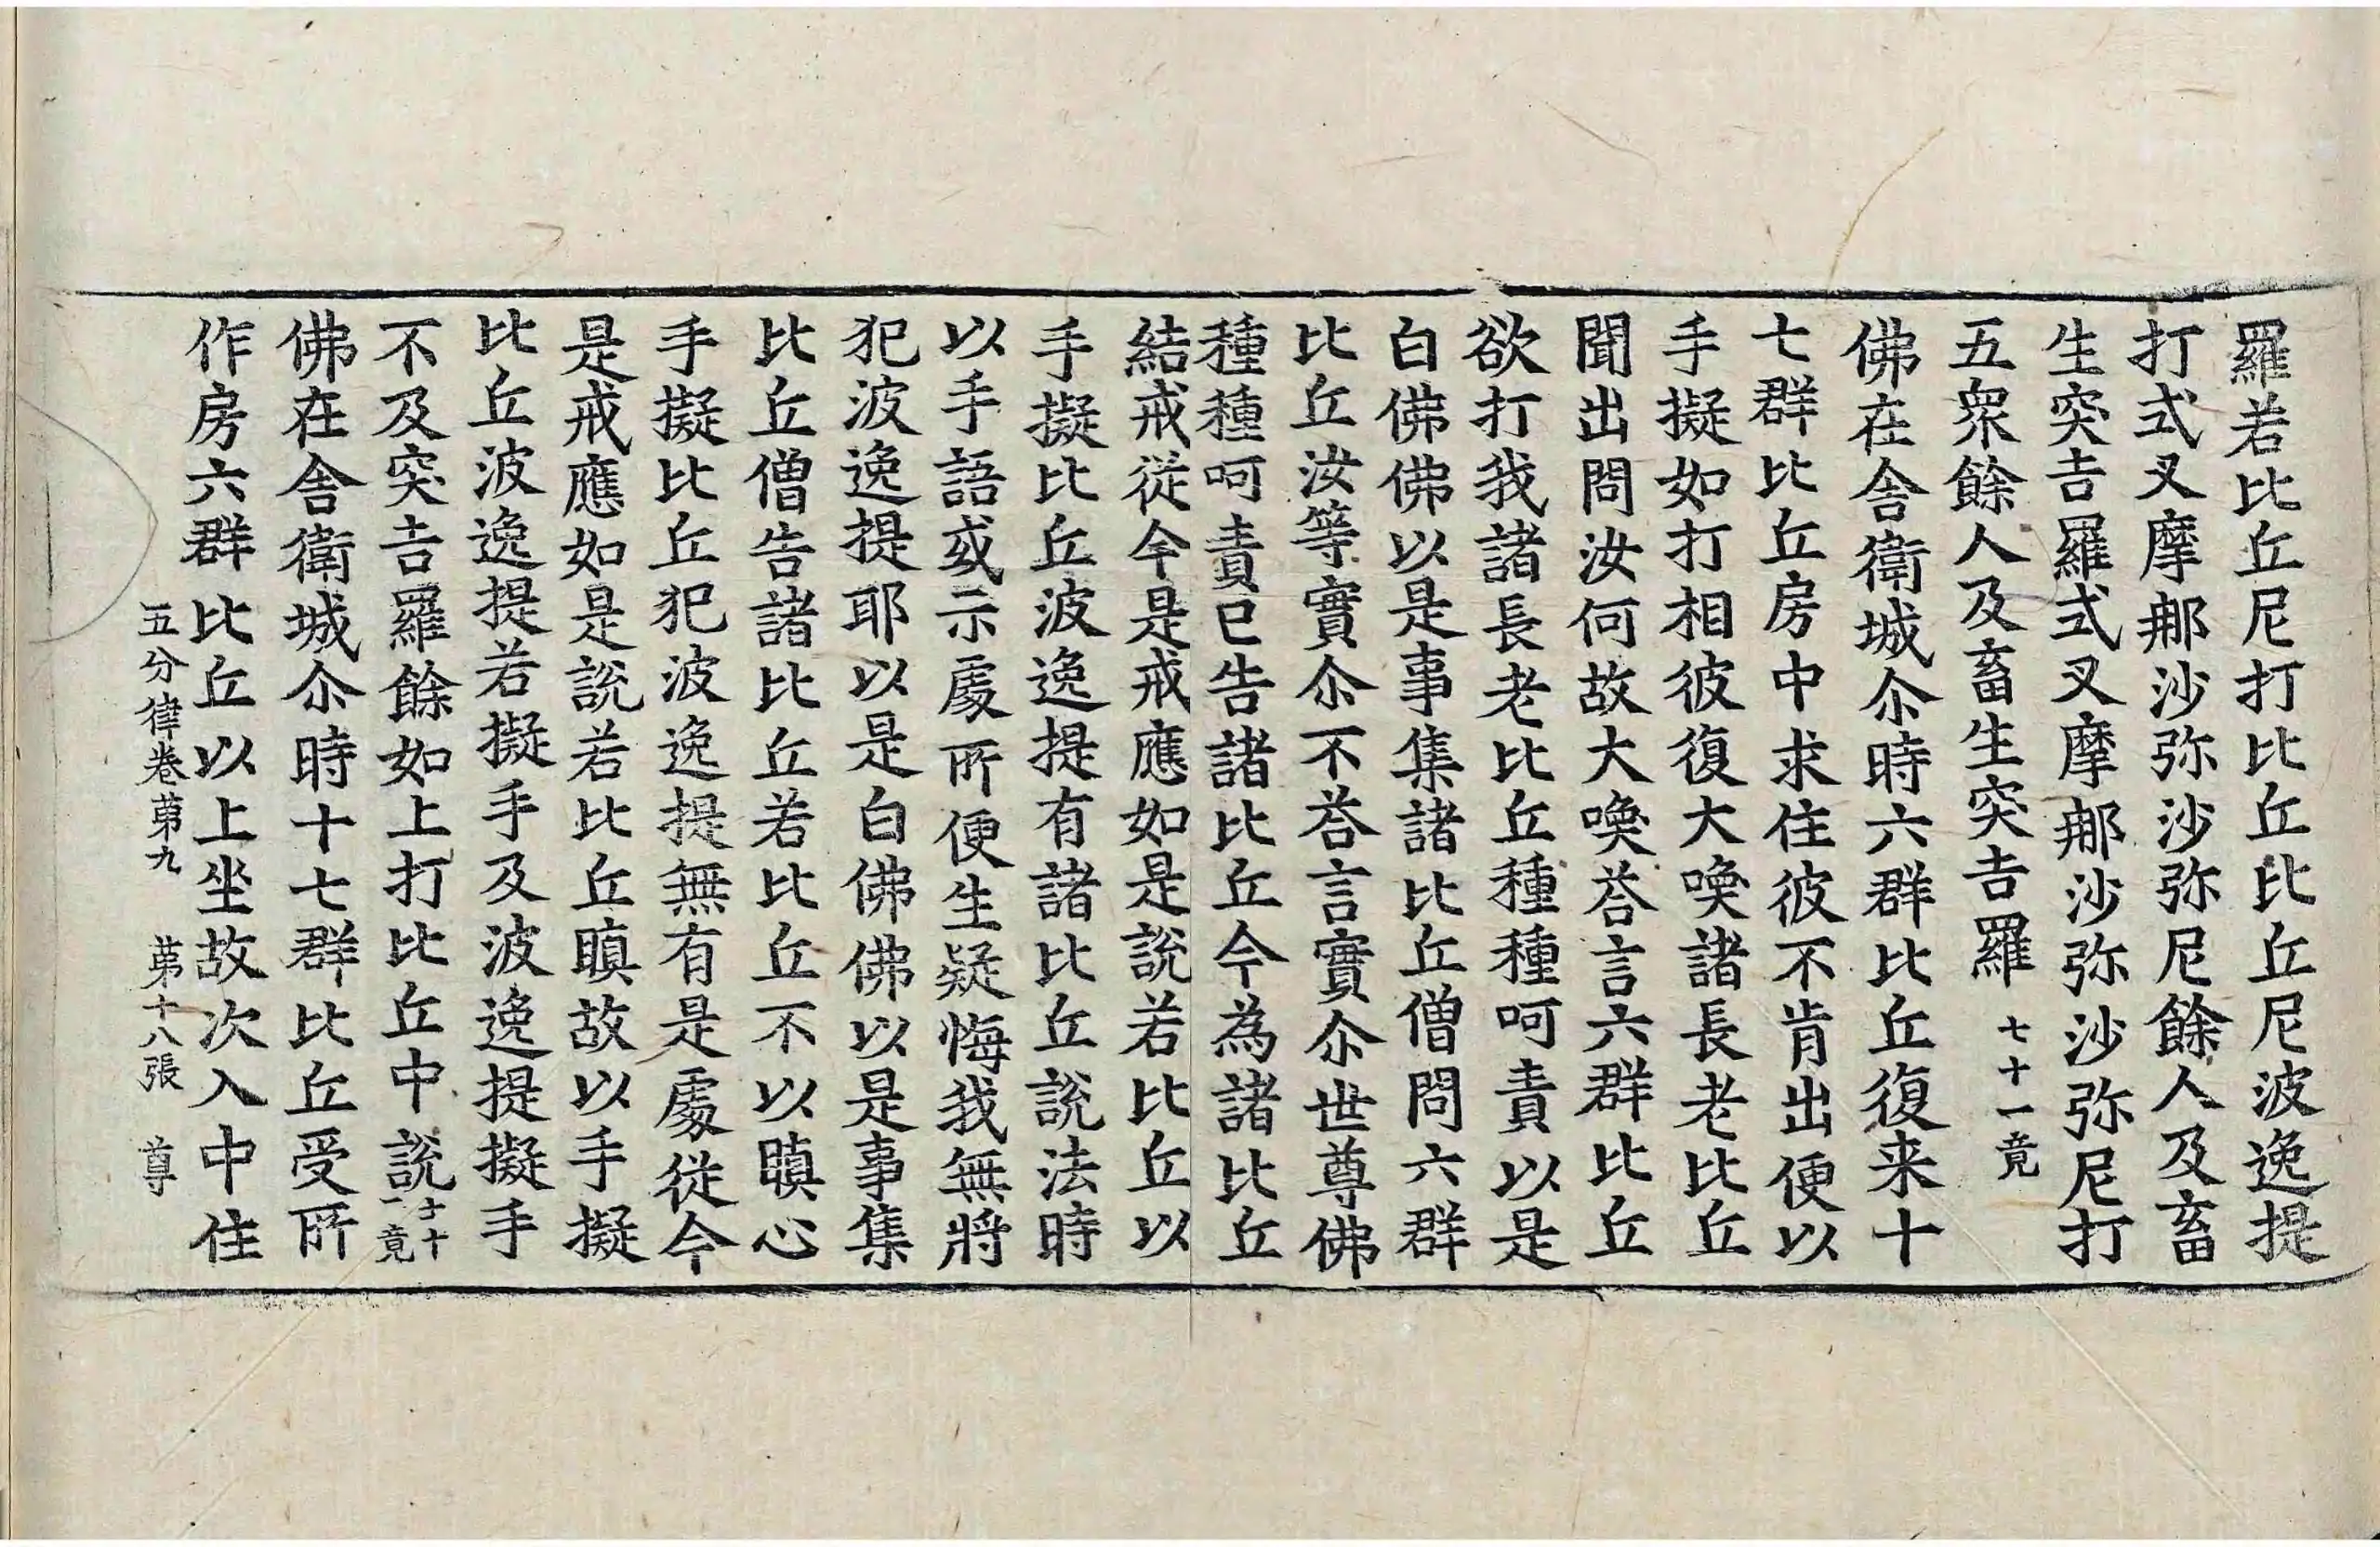 羅若比丘尼打比丘比丘尼波逸提
打式叉摩那沙弥沙弥尼餘人及畜
生突吉羅式叉摩那沙弥沙弥尼打
五衆餘人及畜生突吉羅 七十一竟
佛在舍衛城尒時六群比丘復来十
七群比丘房中求住彼不肯出便以
手擬如打相彼復大喚諸長老比丘
聞出問汝何故大喚荅言六群比丘
欲打我諸長老比丘種種呵責以是
白佛佛以是事集諸比丘僧問六群
比丘汝等實尒不荅言實尒世尊佛
種種呵責已告諸比丘今為諸比丘
結戒從今是戒應如是說若比丘以
手擬比丘波逸提有諸比丘說法時
以手語或示處所便生疑悔我無將
犯波逸提耶以是白佛佛以是事集
比丘僧告諸比丘若比丘不以瞋心
手擬比丘犯波逸提無有是處從今
是戒應如是說若比丘瞋故以手擬
比丘波逸提若擬手及波逸提擬手
不及突吉羅餘如上打比丘中說 七十一竟
佛在舍衛城尒時十七群比丘受所
作房六群比丘以上坐故次入中住
五分律卷第九 第十八張 尊